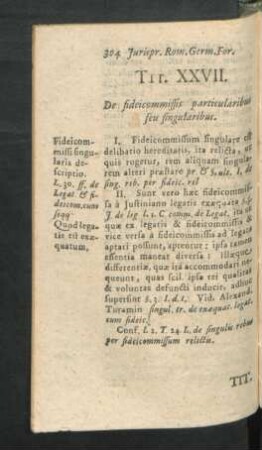 304 Jurispr. Rom. Germ. For.
TIT. XXVII.
De fideicommissis particularibus
seu singularibus.
Fideicom-
missi singu-
laris de-
scriptio.
L. 30. ff. de
Legat & fi-
deicom. cum
seqq
Quod lega-
tis sit exæ-
quatum,
I. Fideicommissum singulare est
delibatio hereditatis, ita relicta, ut
quis rogetur, rem aliquam singular
rem alteri præstare pr & §. ult. I. de
sing. reb. per fideic. rel
II. Sunt vero hæc fideicommis-
sa à Justiniano legatis exæquata §. 3.
J. de leg l. 2 C comm. de Legat, ita ut
quæ ex legatis & fideicommissis
vice versa à fideicommissis ad lega
aptari possunt, aptentur: ipsa tamen
essentia maneat diversa: illæque
differentiæ, quæ ita accommodari ne-
queunt, quas scil. ipsa rei qualitas
& voluntas defuncti inducit, adhuc
supersint §. 3. I. d. t. Vid. Alexand.
Turamin singul. tr. de exæquat. legat.
cum fideic.
Conf. I. 2. T. 24. I. de singulis rebus
per fideicommissum relictis.
TIT.